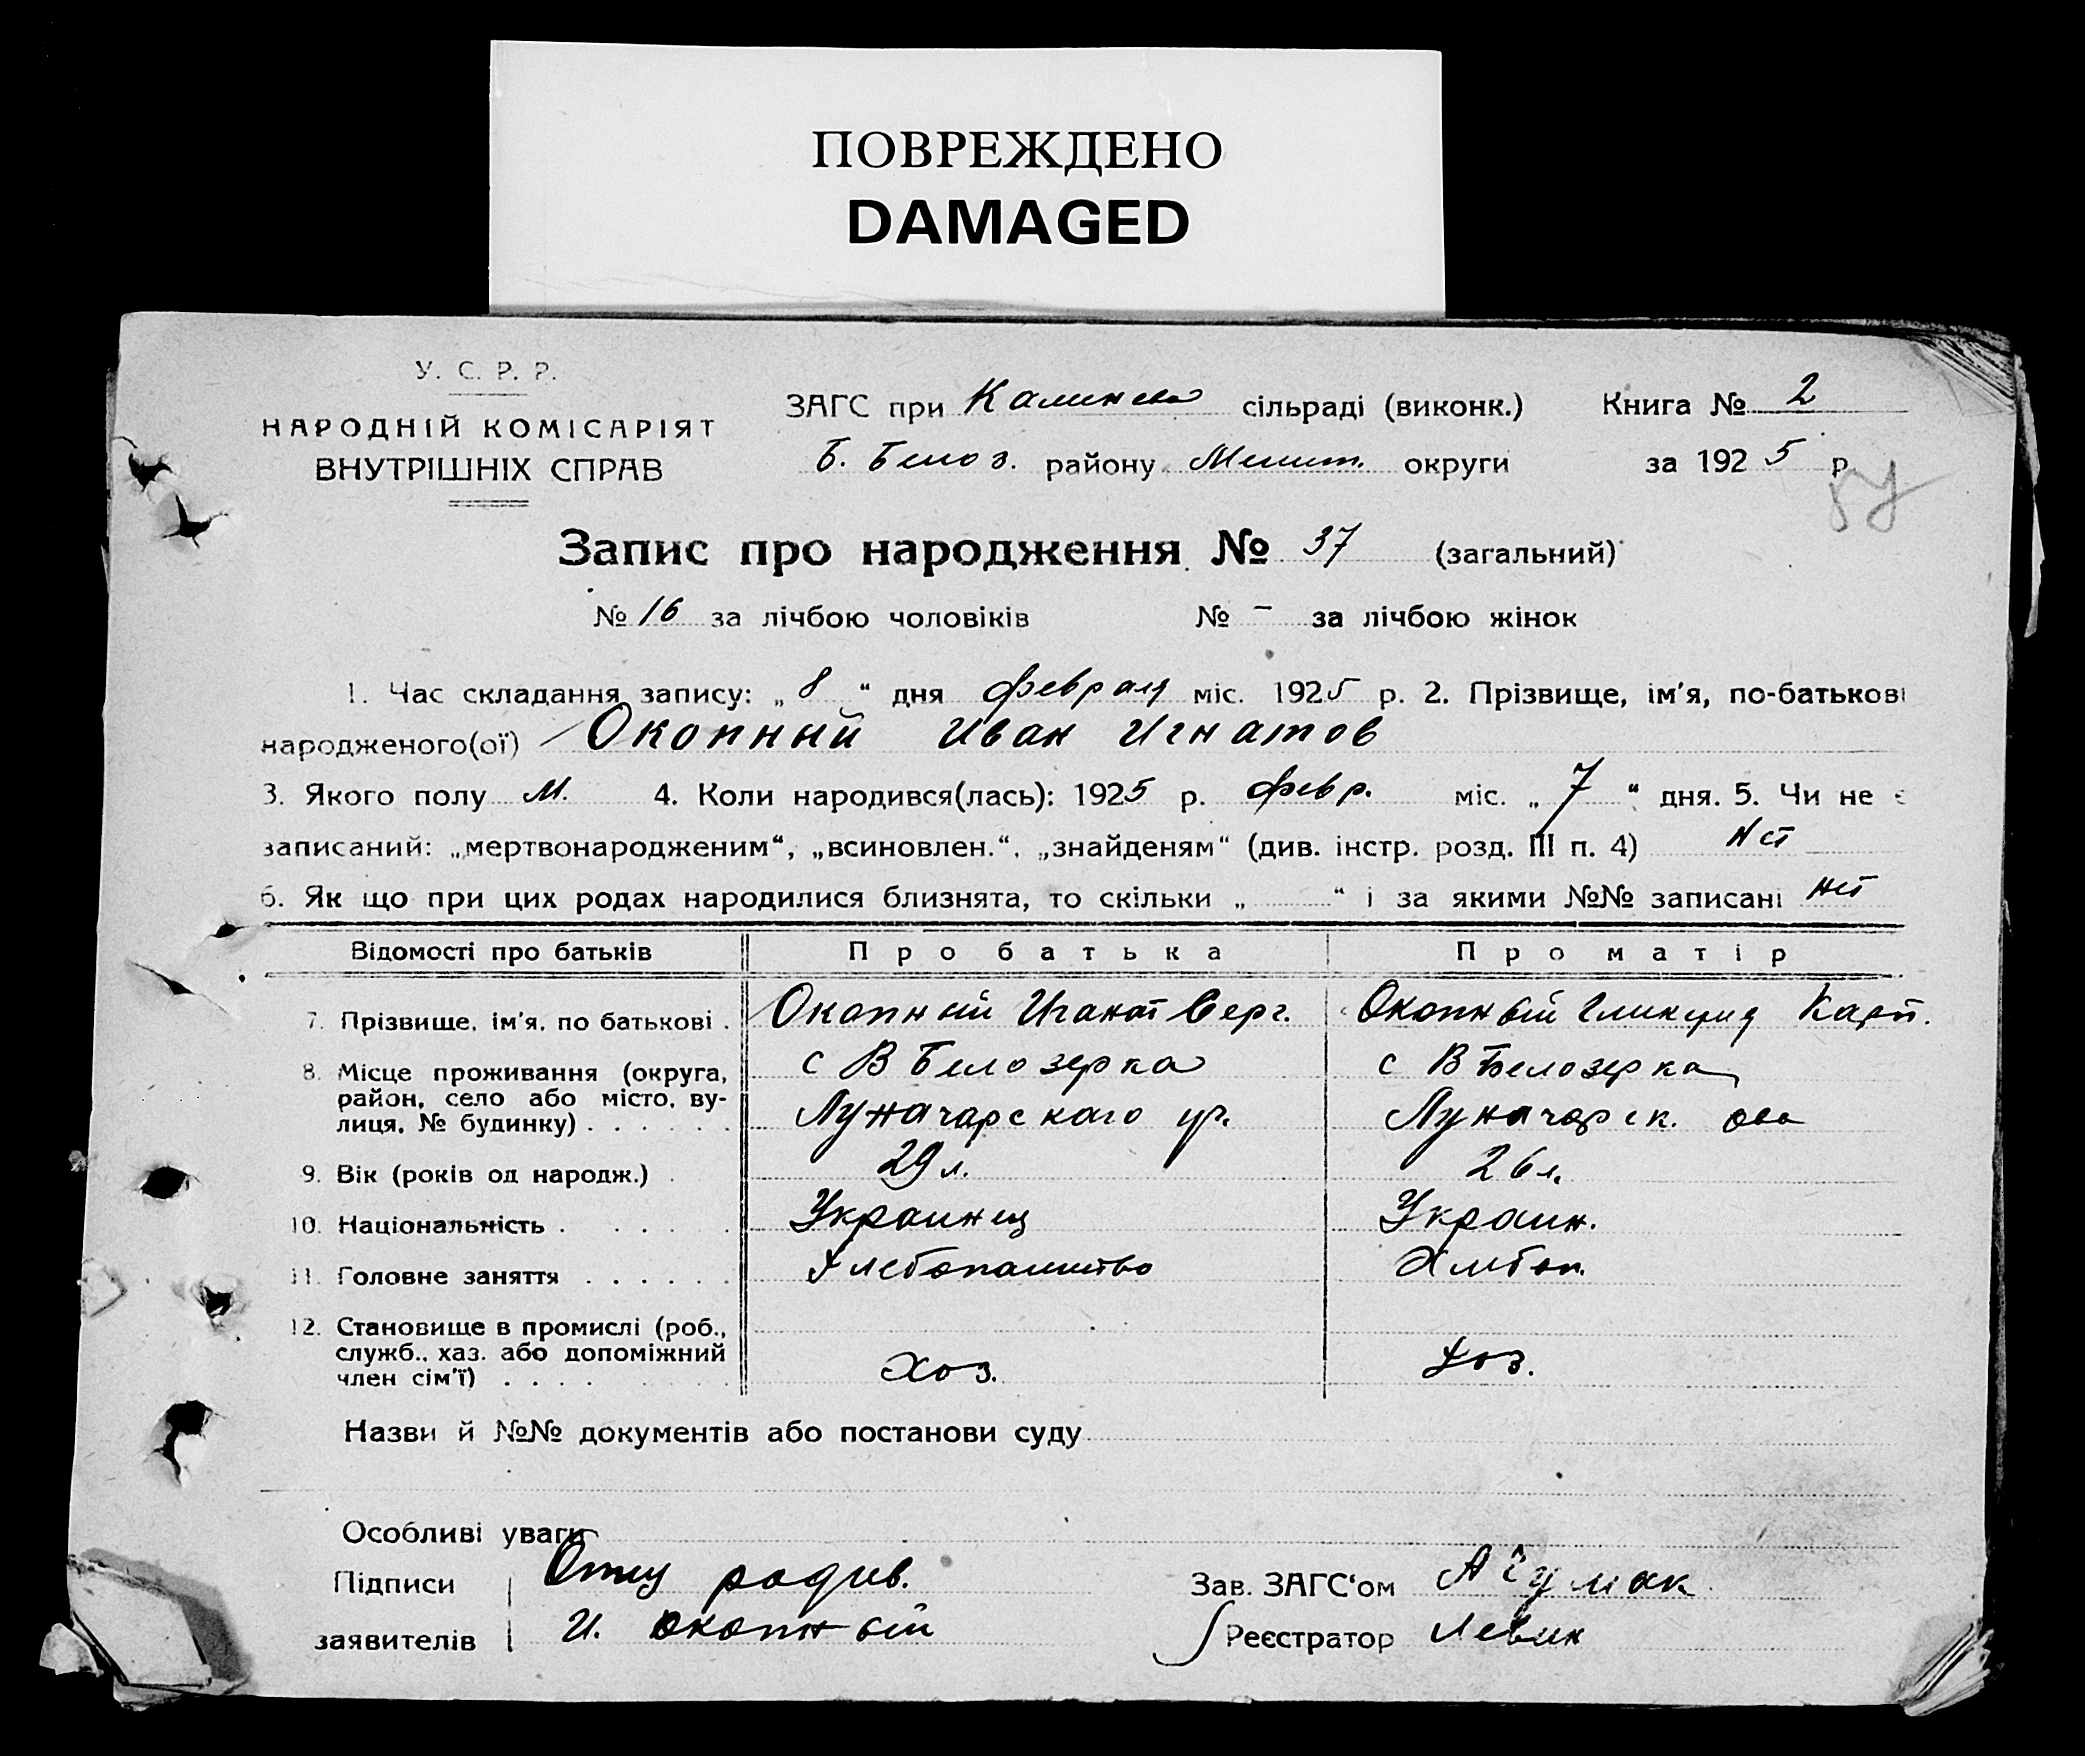 ПОВРЕЖДЕНО
DAMAGED
У. С. Р. Р.
НАРОДНІЙ КОМІСАРІЯТ
ВНУТРІШНІХ СПРАВ
ЗАГС при сільраді (виконк.) Книга № 2
Б. Белоз. району Мелит. округи за 1925 р.
57
Запис про народження № 37 (загальний)
№ 16 за лічбою чоловіків № – за лічбою жінок
1. Час складання запису: „8“ дня февраля міс. 1925 р. 2. Прізвище, ім'я, по-батькові
народженого(ої) Окопный Иван Игнатов
3. Якого полу м. 4. Коли народився(лась): 1925 р. февр. міс. „7“ дня. 5. Чи не є
записаний: „мертвонародженим“, „всиновлен.“, „знайденям“ (див. інстр. розд. III п. 4) нет
6. Як що при цих родах народилися близнята, то скільки „ “ і за якими №№ записані нет
Відомості про батьків Про батька Про матір
7. Прізвище, ім'я, по батькові . Окопный Игнат Серг. Окопный Карп.
8. Місце проживання (округа, район, село або місто, вулиця, № будинку) . . . . . . с В Белозерка с В Белозерка
Луначарскаго Луначарск.
9. Вік (років од народж.) . 29 л. 26 л.
10. Національність . . . . . Украинец Украин.
11. Головне заняття . . . . . . Хлебопашество Хлебоп.
12. Становище в промислі (роб., служб., хаз. або допоміжний член сім'ї) . . . . Хоз. Хоз.
Назви й №№ документів або постанови суду
Особливі уваги
Підписи Отец родив. Зав. ЗАГС‘ом
заявителів И. Окопный Реєстратор Левик